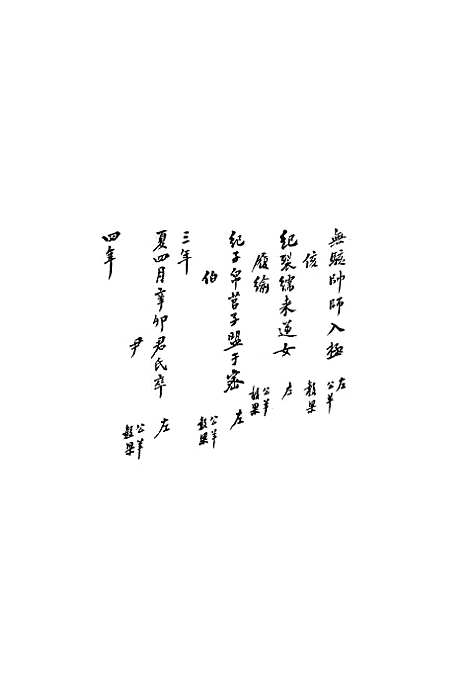 無駭帥師入極 左
公羊
侅 穀梁
紀裂繻来逆女 左
履緰 公羊
穀梁
紀子帛莒子盟于密 左
伯 公羊
穀梁
三年
夏四月辛卯君氏卒 左
尹 公羊
穀梁
四年